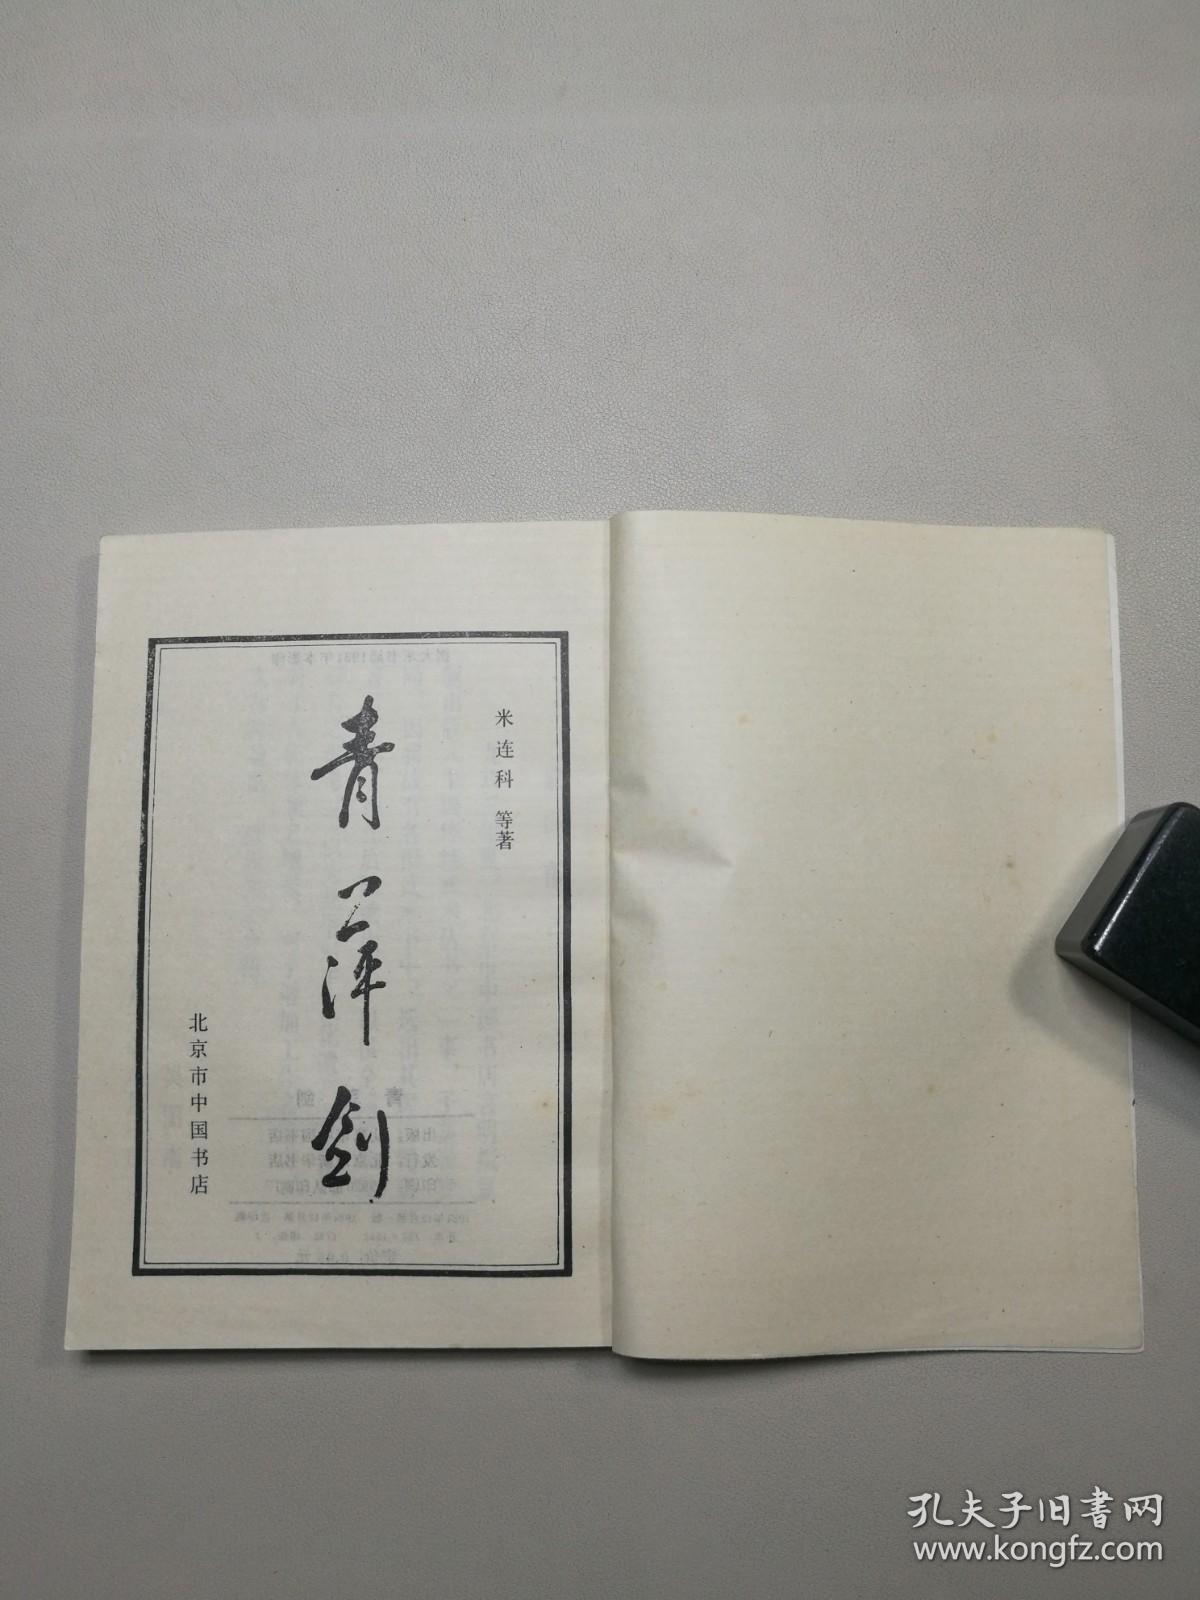 米连科 等著
青萍剑
北京市中国书店
孔夫子旧书网
www.kongfz.com